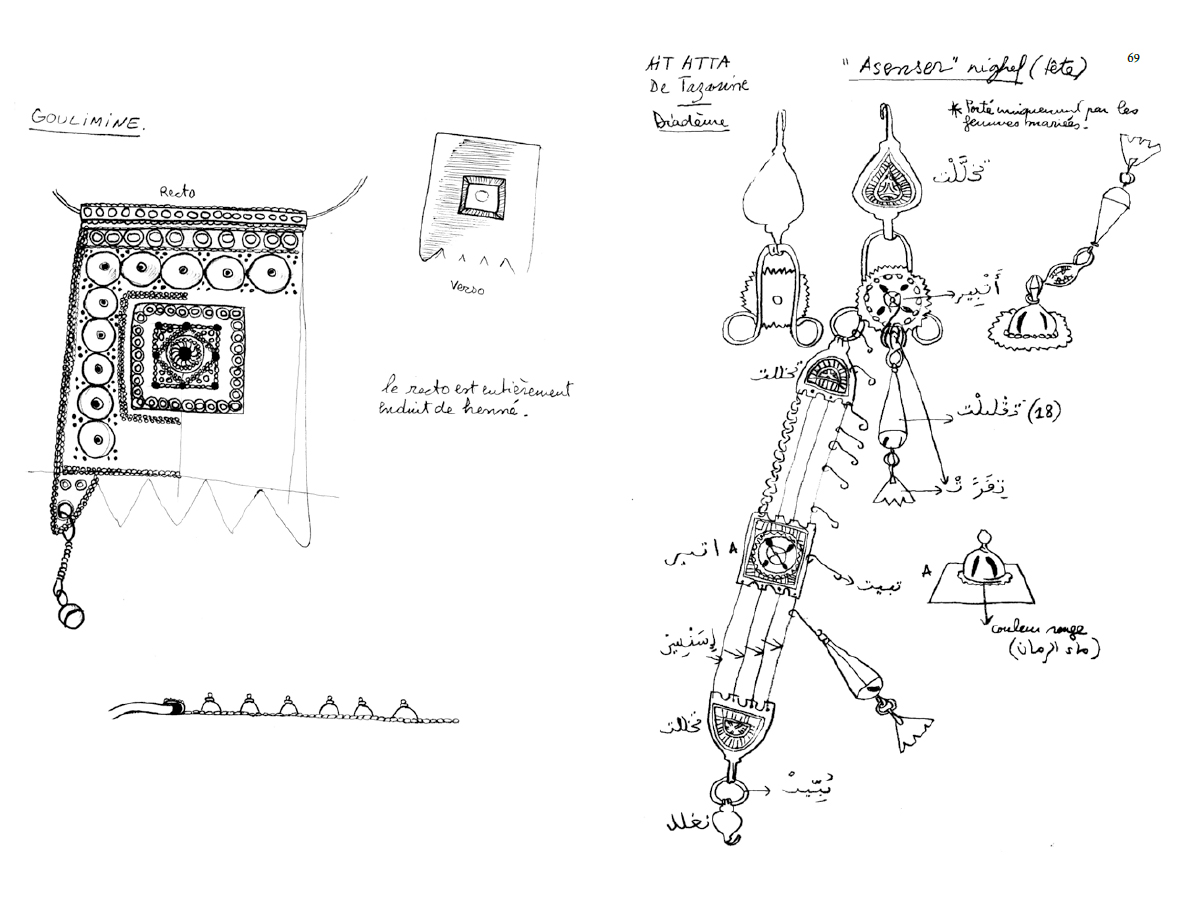 GOULIMINE.
Recto
Verso
le recto est entièrement
enduit de henné.
AIT ATTA
De Tazarine
Diadème
"Asenser" nighef (tête)
69
* Porté uniquement par les
femmes mariées.
تخلّلت
أتبير
تخللت
(18)
تفرَتْ
اتبر A
تبيت
A
couleur rouge
(ماء الرمان)
تخللت